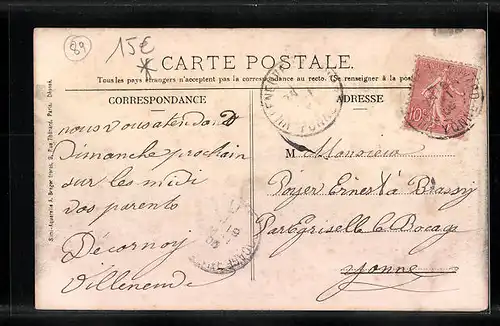 89
15€
CARTE POSTALE.
Tous les pays étrangers n'acceptent pas la correspondance au recto. (Se renseigner à la poste
CORRESPONDANCE
ADRESSE
nous vous attendons
Dimanche prochain
sur les midi
vos parents
Décornoy
Villeneuve
M Monsieur
Poyer Ernest à Brassy
Par Égriselle le Bocage
Yonne
10
YONNE
Simi-Aquarelle A. Breger frères, 9, Rue Thénard, Paris. Déposé.